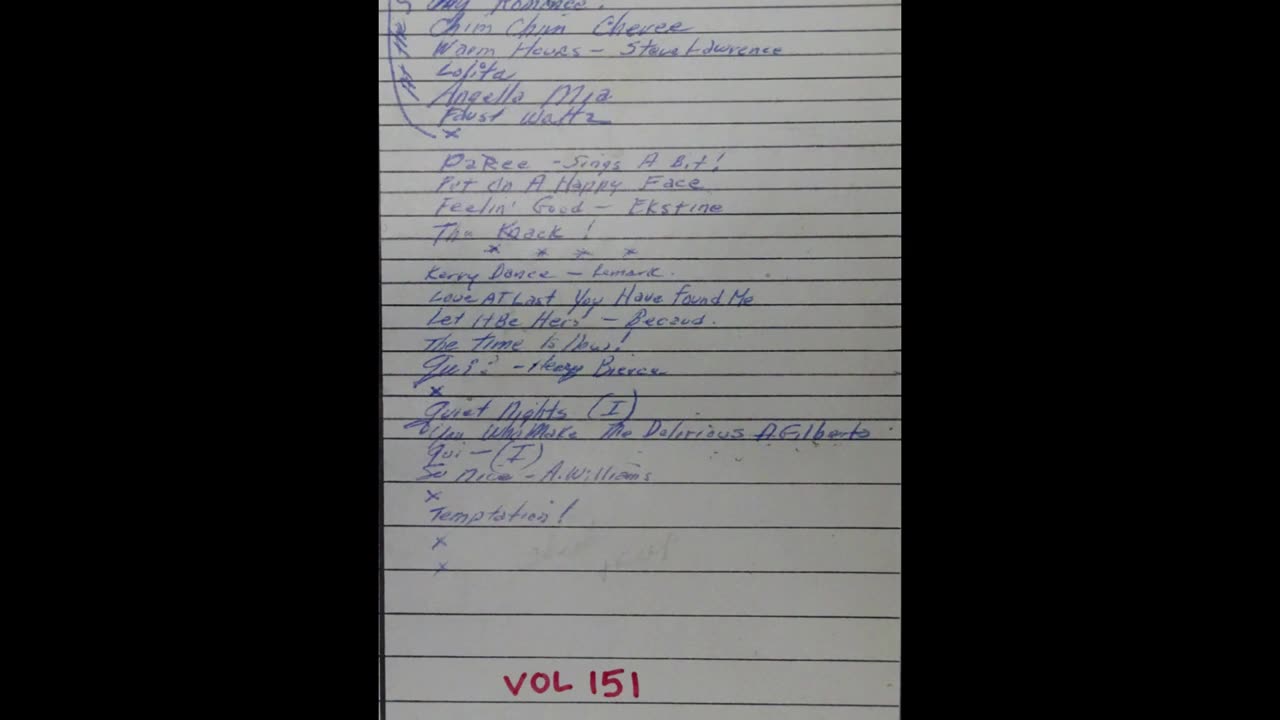 At The
My Romance.
Chim Chim Cheree
Warm Hours - Steve Lawrence
Lolita
Angella Mia
Faust Waltz
x
PaRee - Sings A Bit!
Put On A Happy Face
Feelin' Good - Ekstine
The Knack!
* * * *
Kerry Dance - Lemark.
Love AT Last You Have Found Me
Let It Be Hers - Becaud.
The Time Is Now!
Qui? - Henry
x
Quiet Nights (I)
You Who Make The Delirious A. Gilberto
Qui - (I)
So Nice - A. Williams
x
Temptation!
x
x
VOL 151